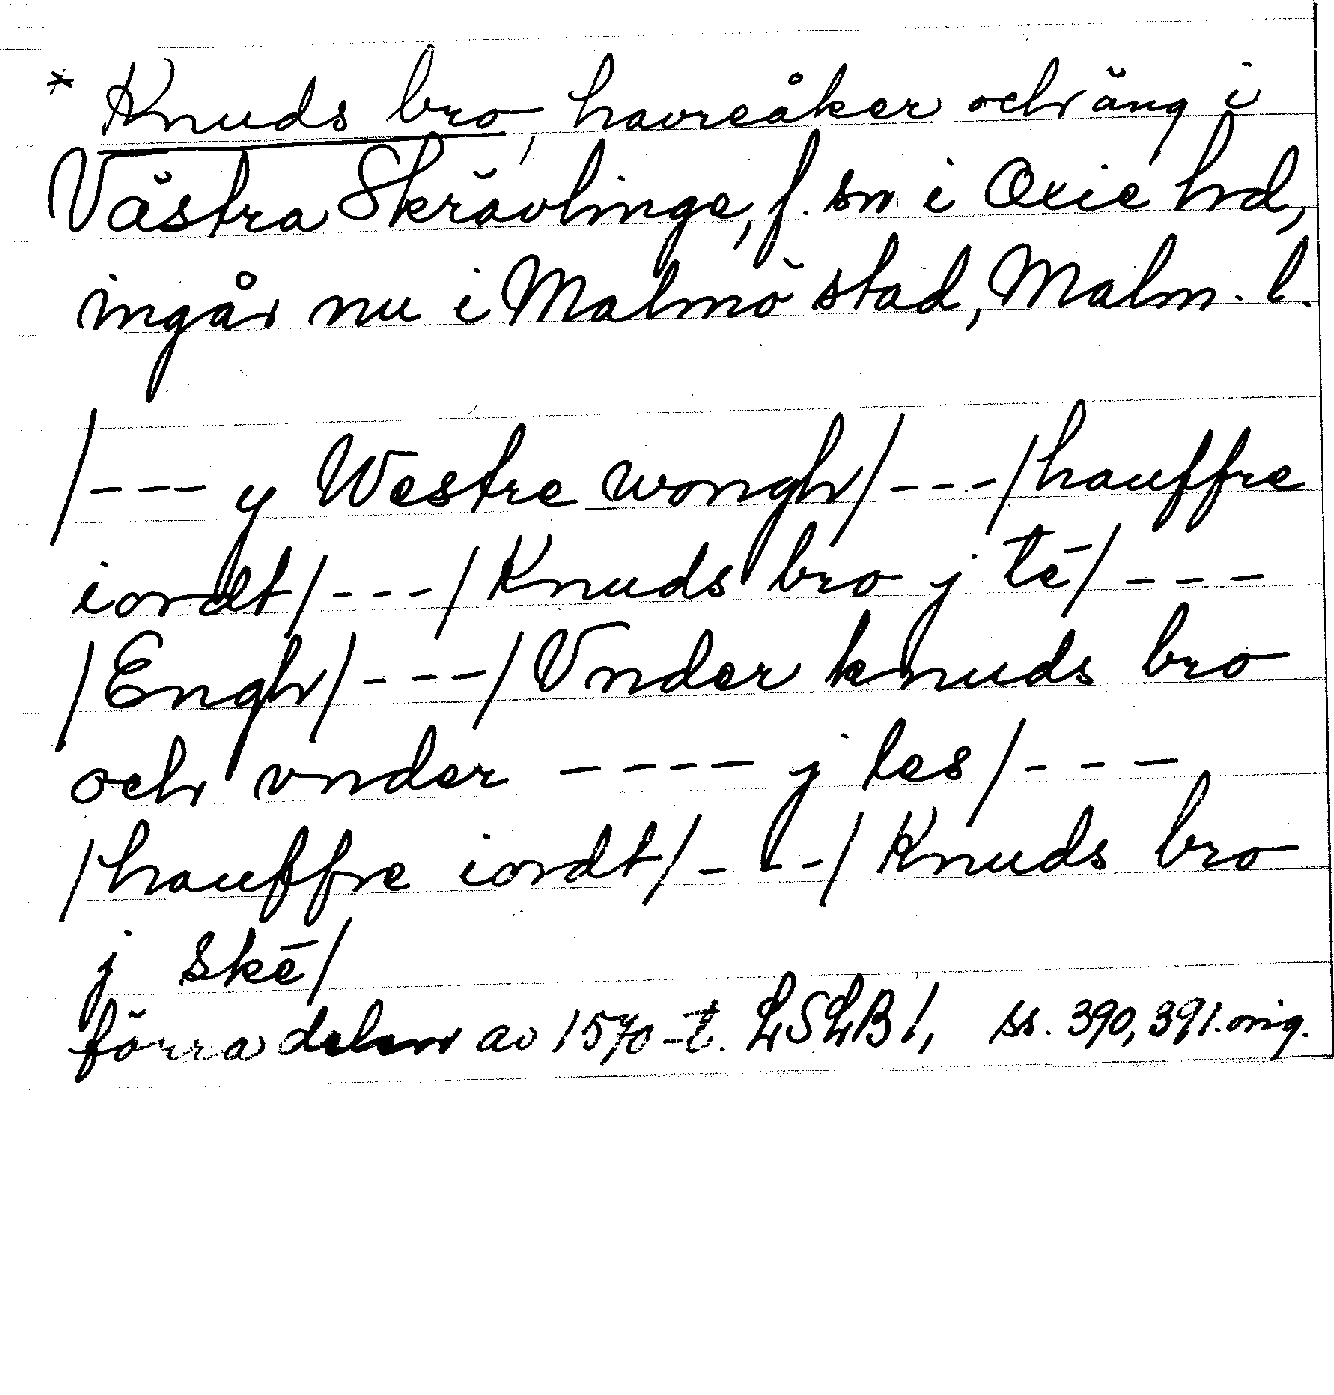 * Knuds bro, havreåker och äng i
Västra Skrävlinge, f. sn i Oxie hd,
ingår nu i Malmö stad, Malm. l.
/--- y Westre wongh/---/hauffre
iordt/---/Knuds bro j tē/---
/Engh/---/Vnder knuds bro
och vnder ---- j les/---
/hauffre iordt/---/Knuds bro
j skē/
förra delen av 1570-t. LSLB 1, ss. 390, 391. orig.